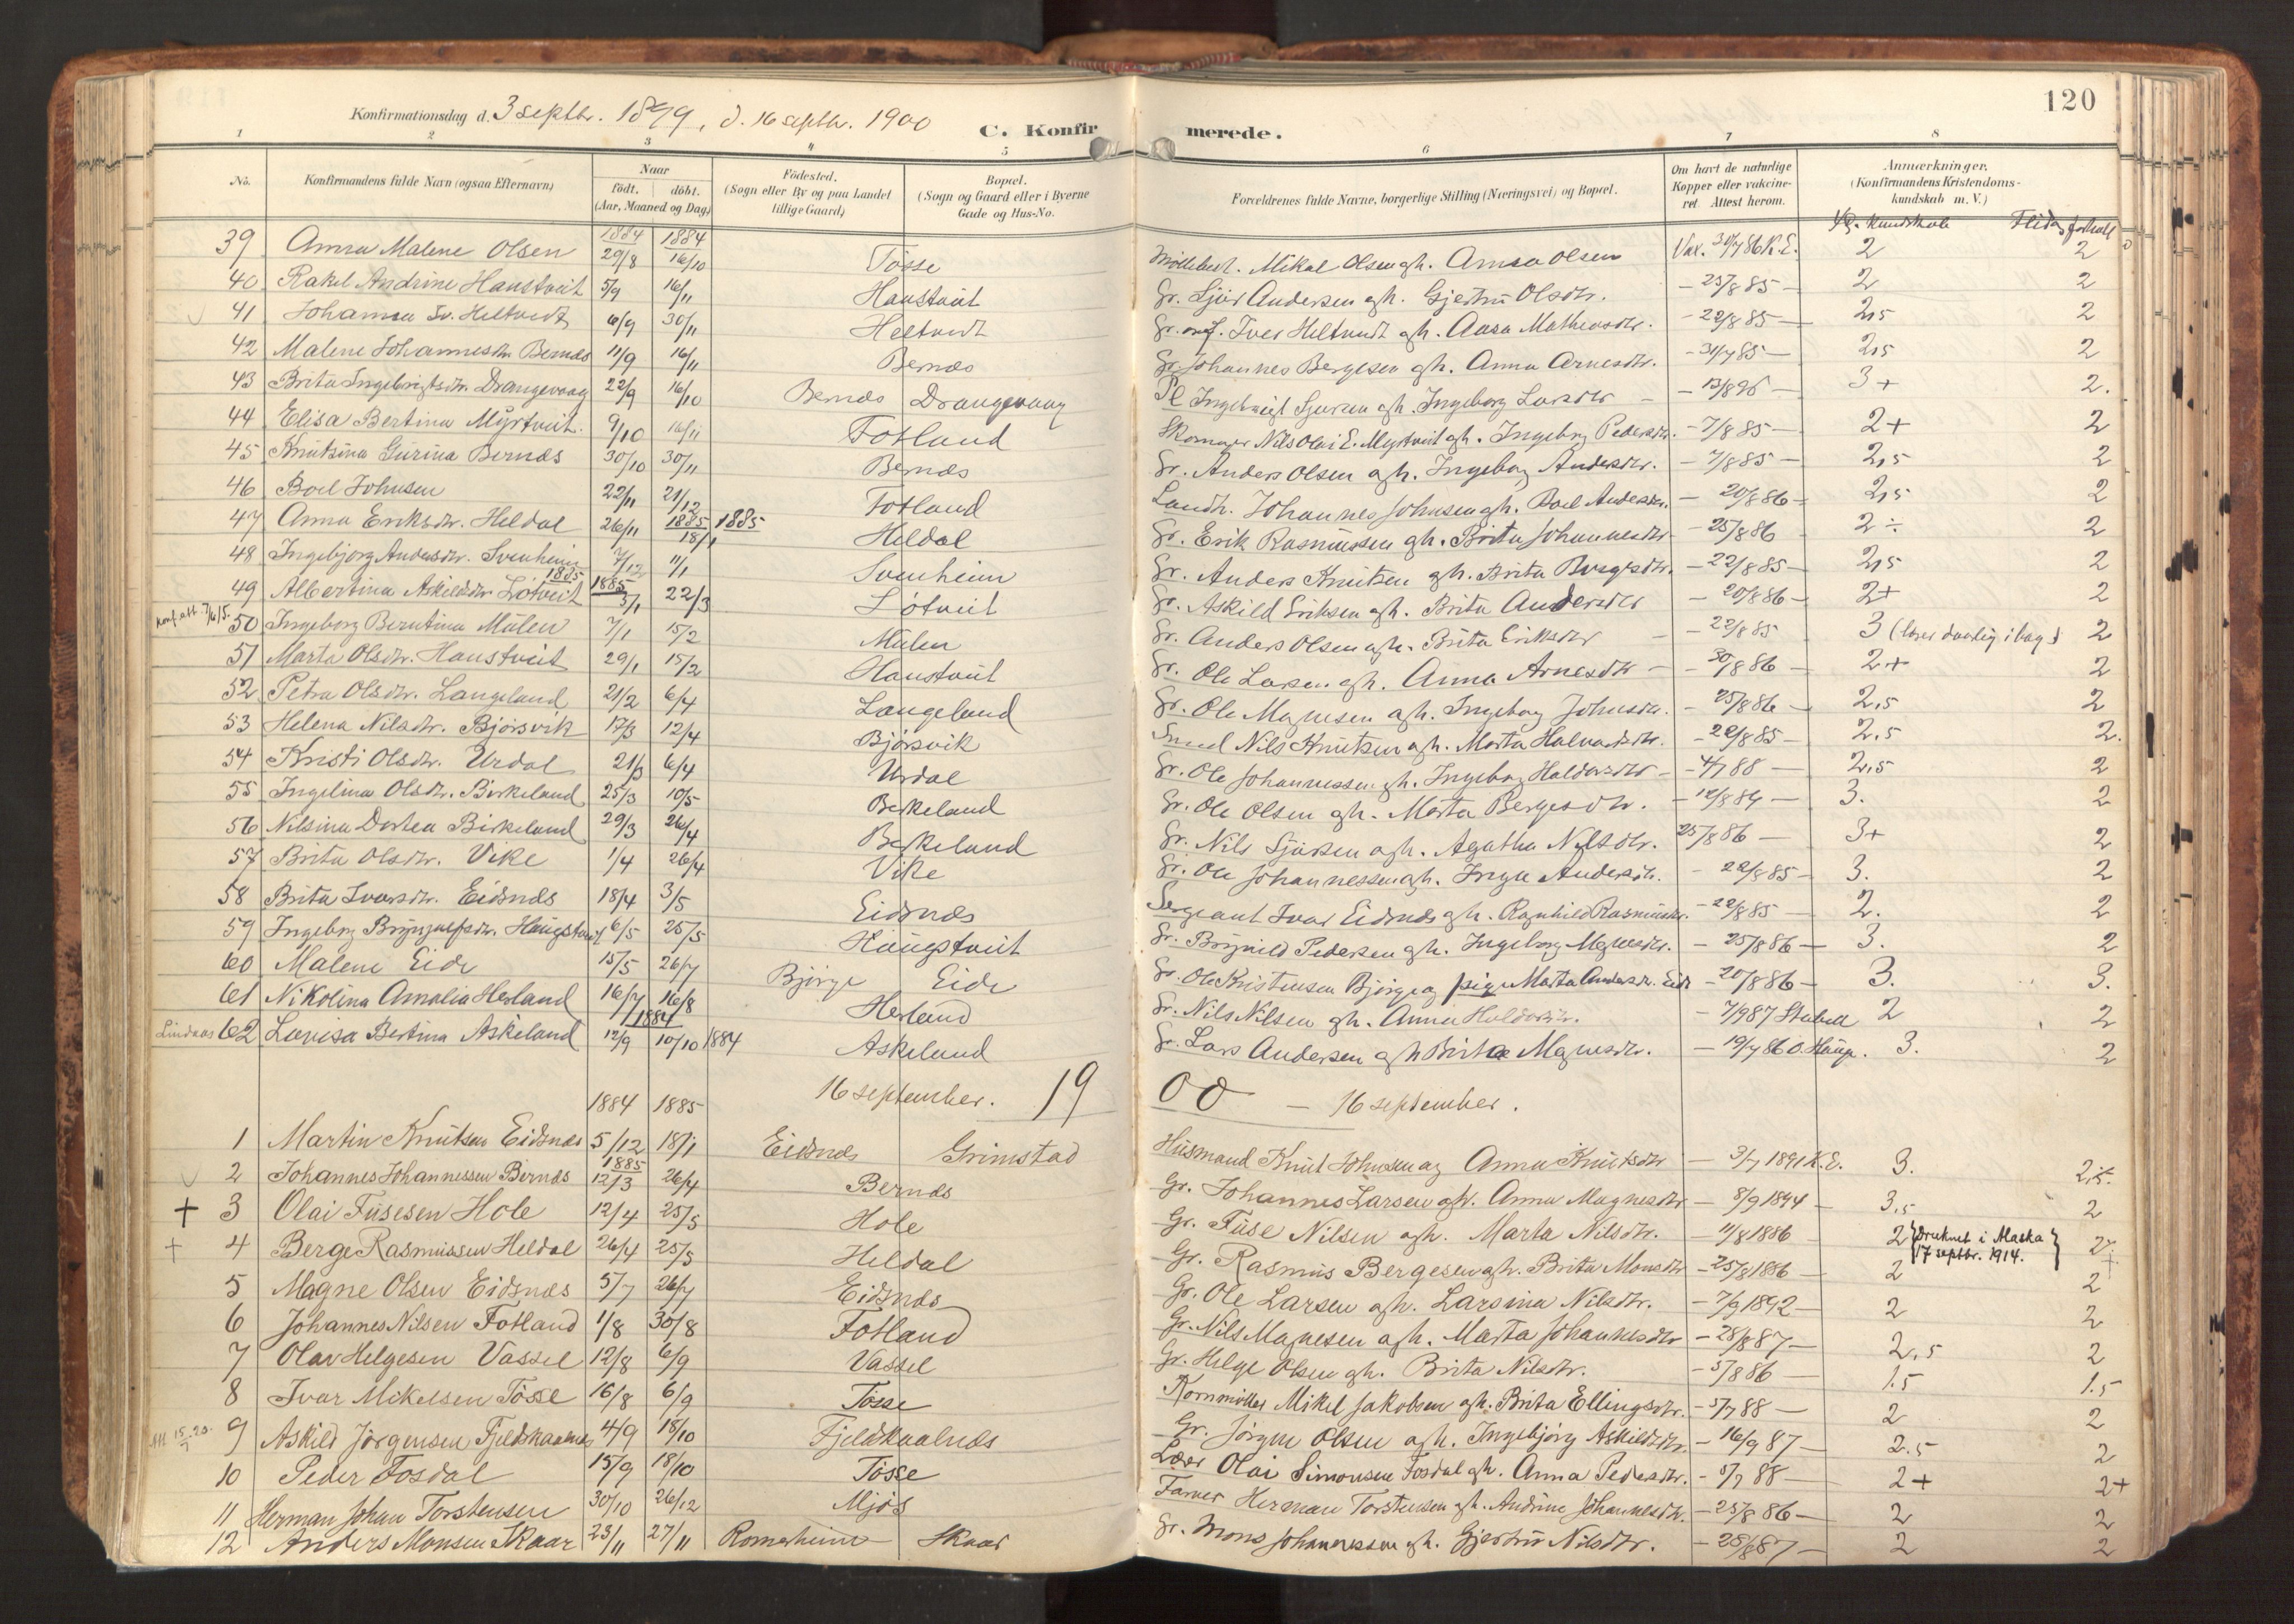 120
Konfirmationsdag d. 3 septbr. 1899, d. 16 septbr. 1900 C. Konfirmerede.
1 2 3 4 5 6 7 8
No. Konfirmandens fulde Navn (ogsaa Efternavn) Naar födt. döbt. (Aar, Maaned og Dag) Födested. (Sogn eller By og paa Landet tillige Gaard) Bopæl. (Sogn og Gaard eller i Byerne Gade og Hus-No. Forældrenes fulde Navne, borgerlige Stilling (Næringsvei) og Bopæl. Om havt de naturlige Kopper eller vakcineret Attest herom. Anmærkninger. (Konfirmandens Kristendomskundskab m. V.)
Kundskab Flid og forhold
1884 1884
39 Anna Malene Olsen 29/8 16/10 Tösse Mikal Olsen gh. Anna Olsen Vax. 30/7 86 K.E. 2 2
40 Rakel Andrine Haustveit 5/9 16/11 Haustveit Gr. Sjur Andersen gh. Gjertrü Olsdtr. - 25/8 85 - 2 2
41 Johanna Iv. Heltvedt 6/9 30/11 Heltvedt Iver Heltvedt gh. Anna Matheusdtr. - 22/8 85 - 2,5 2
42 Malene Johannesdr. Bernæs 11/9 16/11 Bernæs Gr. Johannes Bergesen gh. Anna Arnesdtr. - 31/7 85 - 2,5 2
43 Brita Ingebrigtsdtr. Drangevaag 22/9 16/10 Bernæs Drangevaag Pl Ingebrigt Sjursen gh. Ingeborg Larsdtr - 13/8 95 - 3+ 2.
44 Elisa Bertina Myrtveit. 9/10 16/11 Fotland Skomager Nils Olai E. Myrtveit gh. Ingeborg Pedersdtr. - 7/8 85 - 2+ 2
45 Knutsina Gurina Bernæs 30/10 30/11 Bernæs Gr. Anders Olsen gh. Ingeborg Andersdtr. - 7/8 85 - 2,5 2
46 Boel Johnsen 22/11 21/12 Fotland Landh. Johannes Johnsen gh. Boel Andersdr. - 20/8 86 - 2,5 2
47 Anna Eriksdtr. Heldal 26/11 1885 18/1 1885 Heldal Gr. Erik Rasmussen gh. Brita Johannesdtr - 25/8 86 2 ÷ 2
48 Ingebjorg Andersdtr. Svenheim 7/12 11/1 Svenheim Gr. Anders Knutsen gh. Brita Bergesdtr. - 22/8 85 - 2,5 2
1885 1885
49 Albertina Askildsdtr. Lötveit 5/1 22/3 Lötveit Gr. Askild Eriksen gh. Brita Andersdtr - 20/8 86 - 2+ 2
Konf. att. 7/6 15. 50 Ingeborg Berntina Mülen 7/1 15/2 Mülen Gr. Anders Olsen gh. Brita Eriksdtr - 22/8 85 3 (læser daarlig i bog) 2
51 Marta Olsdtr. Haustveit 29/1 15/2 Haustveit Gr. Ole Larsen gh. Anna Arnesdtr - 30/8 86 - 2+ 2
52 Petra Olsdtr. Langeland 21/2 6/4 Langeland Gr. Ole Magnesen gh. Ingeborg Johnsdr. - 25/8 86 - 2,5 2
53 Helena Nilsdtr. Bjørsvik 17/3 12/4 Bjørsvik Smed Nils Knutsen gh. Marta Halvardsdtr. - 22/8 85 - 2,5 2.
54 Kristi Olsdtr. Urdal 21/3 6/4 Urdal Gr. Ole Johannessen gh. Ingeborg Haldorsdtr - 4/7 88 - 2,5 2
55 Ingelina Olsdtr. Birkeland 25/3 10/5 Birkeland Gr. Ole Olsen gh. Marta Bergesdtr. - 12/8 84 - 3. 2
56 Nilsina Dortea Birkeland 29/3 26/4 Birkeland Gr. Nils Sjursen gh. Agatha Nilsdtr. 25/8 86 - 3+ 2
57 Brita Olsdtr. Vike 1/4 26/4 Vike Gr. Ole Johannessen gh. Inga Andersdtr. - 22/8 85 - 3. 2
58 Brita Ivarsdtr. Eidsnæs 18/4 3/5 Eidsnæs Sergeant Ivar Eidsnæs gh. Ragnhild Rasmusdr. - 22/8 85 - 2. 2
59 Ingeborg Brynjulfsdtr. Haugstveit 6/5 25/5 Haugstveit Gr. Brynild Pedersen gh. Ingeborg Magnesdtr. - 25/8 86 - 3. 2
60 Malene Eide 15/5 26/7 Björge Eide Gr. Ole Kristensen Björge og pige Marta Andersdr. Eide - 20/8 86 - 3. 3.
61 Nikolina Amalia Herland 16/7 16/8 Herland Gr. Nils Nilsen gh. Anna Haldorsdtr. - 7/9 87 Stabell 2 2
Lindaas 62 Lovisa Bertina Askeland 12/9 1884 10/10 1884 Askeland Gr. Lars Andersen gh Brita Magnesdtr. - 19/7 86 O. Haug. 3. 2
16 september. 1900 - 16 september.
1884 1885
1 Martin Knutsen Eidsnæs 5/12 18/1 Eidsnæs Grimstad Husmand Knut Johnsen og Anna Knutsdtr - 3/7 1891 K.E. 3. 2,5.
1885
2 Johannes Johannessen Bernæs 12/3 26/4 Bernæs Gr. Johannes Larsen gh. Anna Magnesdtr - 8/9 1894 - 3,5 2
+ 3 Olai Fusesen Hole 12/4 25/5 Hole Gr. Fuse Nilsen gh. Marta Nilsdtr. - 11/8 1886 2 {Druknet i Alaska 17 septbr. 1914.} 2
+ 4 Berge Rasmussen Heldal 26/4 25/5 Heldal Gr. Rasmus Bergesen gh. Brita Monsdtr - 25/8 1886 - 2 2
5 Magne Olsen Eidsnæs 5/7 26/7 Eidsnæs Gr. Ole Larsen gh. Larsina Nilsdtr. - 7/9 1892 - 2 2
6 Johannes Nilsen Fotland 1/8 30/8 Fotland Gr. Nils Magnesen gh. Marta Johannesdtr - 28/8 87 - 2,5 2
7 Olav Helgesen Vassel 12/8 6/9 Vassel Gr. Helge Olsen gh. Brita Nilsdtr. - 5/8 86 - 1.5 1.5
8 Ivar Mikelsen Tösse 16/8 6/9 Tösse Kornmöller Mikel Jakobsen gh. Brita Ellingsdtr. - 5/7 88 - 2 2
Att 15/7 20. 9 Askild Jörgensen Fjeldskaalnæs 4/9 18/10 Fjeldskaalnæs Gr. Jörgen Olsen gh. Ingebjörg Askildsdtr. - 16/9 87 - 2.5 2
10 Peder Fosdal 15/9 18/10 Tösse Lærer Olai Simonsen Fosdal gh. Anna Pedersdtr. - 5/7 88 - 2+ 2+
11 Herman Johan Torstensen 30/10 26/12 Mjös Farver Herman Torstensen gh. Andrine Johannesdtr. - 25/8 86 - 2 2
12 Anders Monsen Skaar 23/11 27/11 Romarheim Skaar Gr. Mons Johannessen gh. Gjertrü Nilsdtr. - 28/8 87 - 2 2